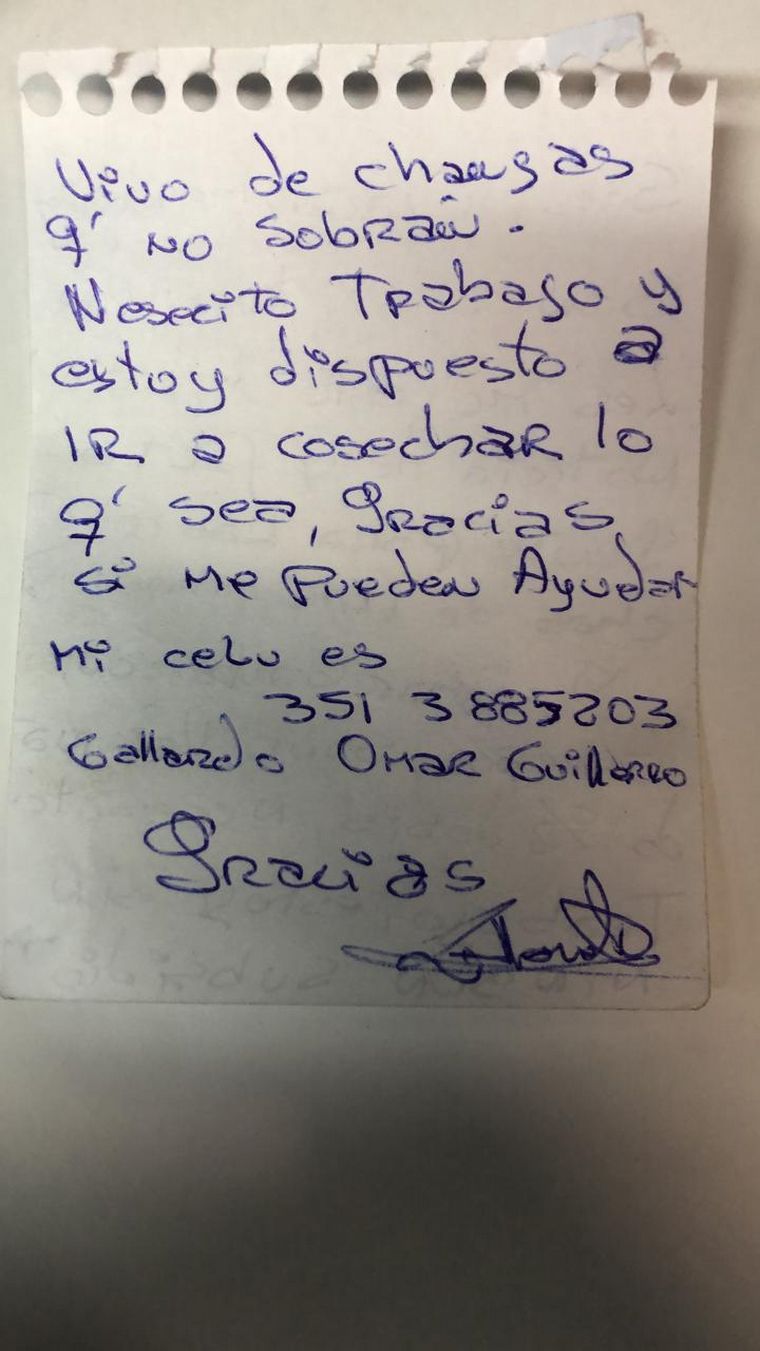 Vivo de changas
q' no sobran.
Nesecito Trabajo y
estoy dispuesto a
IR a cosechar lo
q' sea, Gracias
si me pueden Ayudar
Mi celu es
351 3 885203
Gallardo Omar Guillermo
Gracias